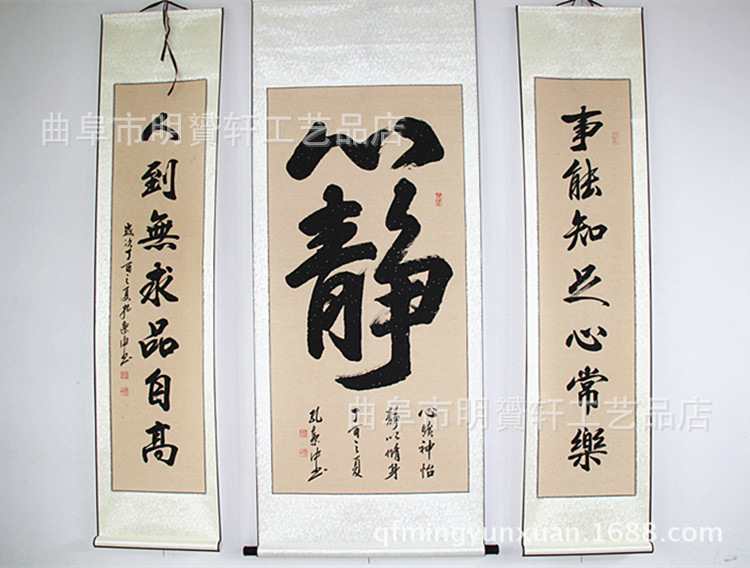 曲阜市明贇轩工艺品店
事能知足心常樂
心静
神怡
静以修身
丁酉之夏
孔
书
人到無求品自高
歲次丁酉之夏孔
书
曲阜市明贇轩工艺品店
qfmingyunxuan.1688.com